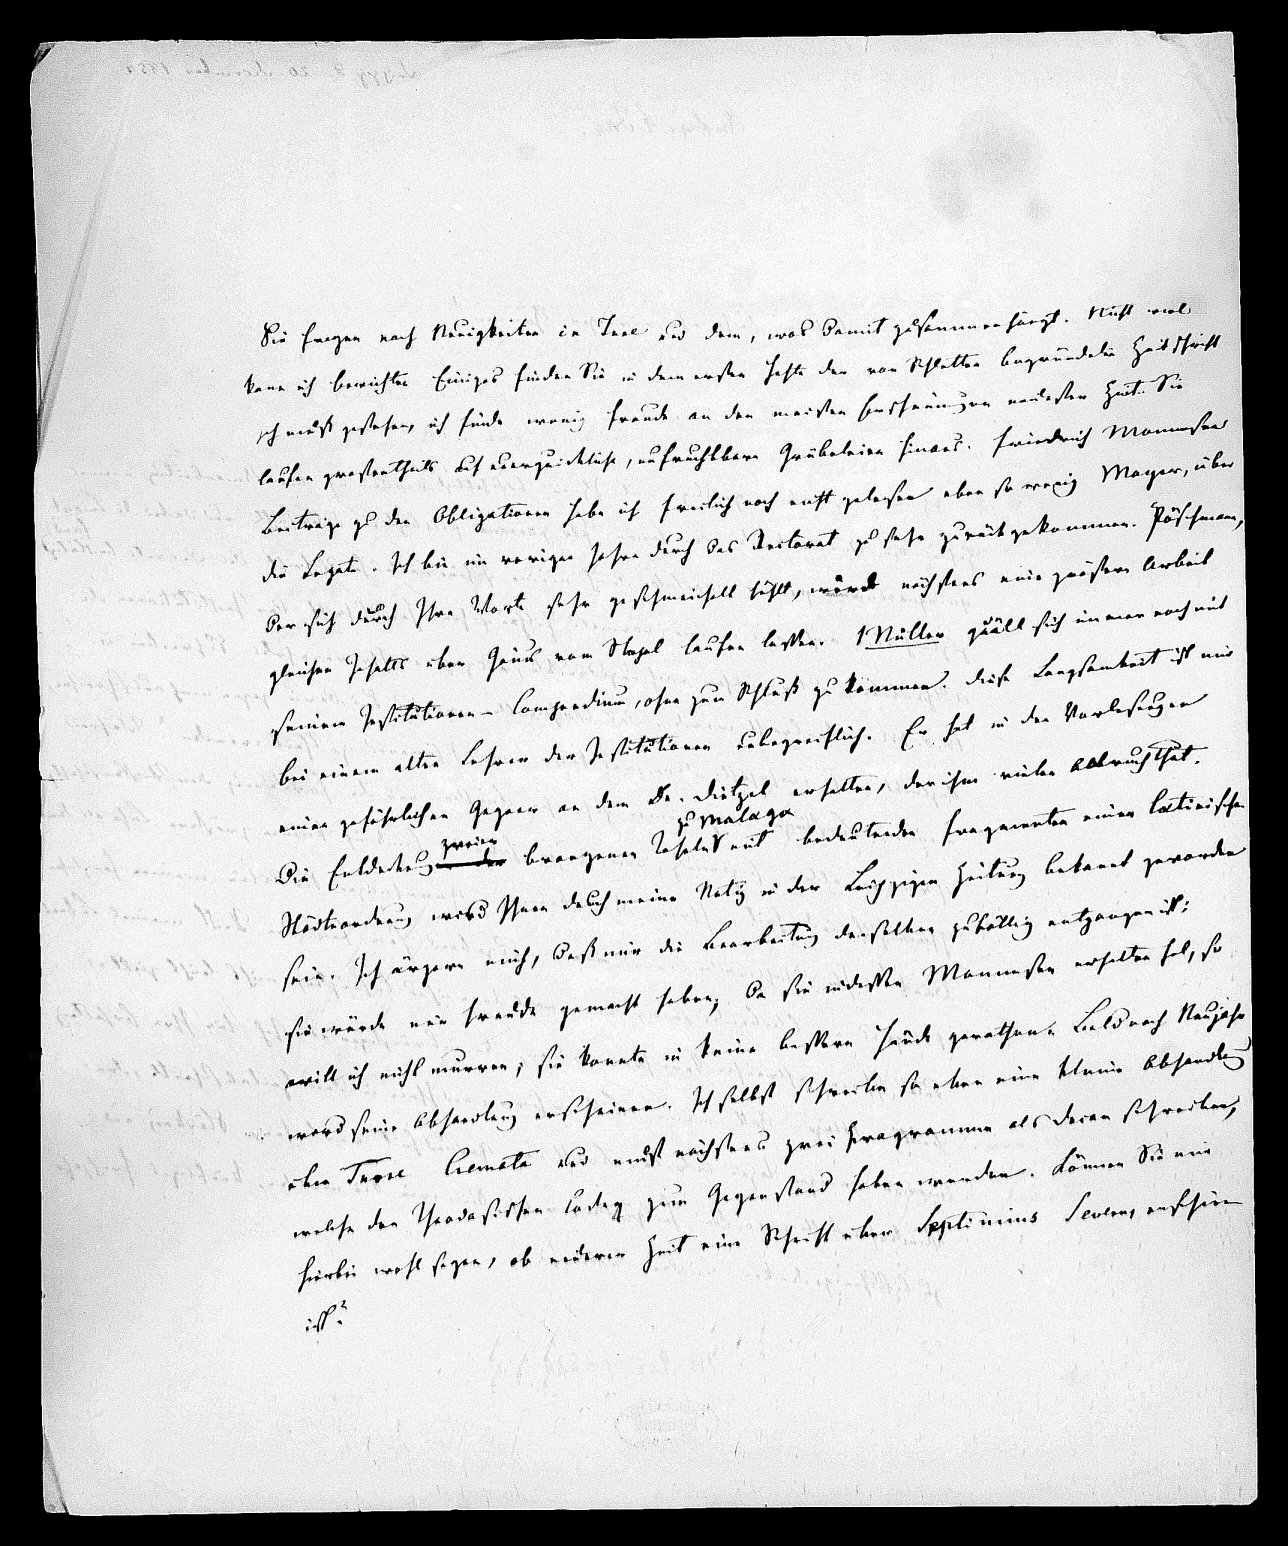 Sie fragen nach Neuigkeiten in Jure und dem, was damit zusammenhängt. Nicht viel
kann ich berichten. Einiges finden Sie in dem ersten Hefte der von Schletter begründeten Zeitschrift
Ich muß gestehen, ich finde wenig Freude an den meisten Erscheinungen neuester Zeit. Sie
laufen großentheils auf unerquickliche, unfruchtbare Grübeleien hinaus. Friedrich Mommsen
Beiträge zu den Obligationen habe ich freilich noch nicht gelesen eben so wenig Mayer, über
die Legate. Ich bin im vorigen Jahre durch das Rectorat zu sehr zurückgekommen. Pöschmann,
der sich durch Ihre Worte sehr geschmeichelt fühlt, wird nächstens eine größere Arbeit
gleichen Inhalts über Gaius vom Stapel laufen lassen. Müller quält sich immer noch mit
seinem Institutionen-Compendium, ohne zum Schluß zu kommen. Diese Langsamkeit ist mir
bei einem alten Lehrer der Institutionen unbegreiflich. Er hat in den Vorlesungen
einen gefährlichen Gegner an dem Dr. Dietzel erhalten, der ihm vielen Abbruch thut.
zu Malaga
Die Entdeckung zweier bronzenen Tafeln mit bedeutenden Fragmenten einer latinischen
Städteordnung wird Ihnen durch meine Notiz in der Leipziger Zeitung bekannt geworden
sein. Ich ärgere mich, daß mir die Bearbeitung derselben zufällig entgangen ist;
sie würde mir Freude gemacht haben; da sie indessen Mommsen erhalten hat, so
will ich nicht murren; sie konnte in keine bessern Hände gerathen. Bald nach Neujahr
wird seine Abhandlung erscheinen. Ich selbst schreibe so eben eine kleine Abhandlung
über Turpilliana und muß nächstens zwei Programme als Decan schreiben,
welche den Theodosischen Codex zum Gegenstand haben werden. Können Sie mir
hierbei wohl sagen, ob neuerer Zeit eine Schrift über Septimius Severus erschienen
ist?